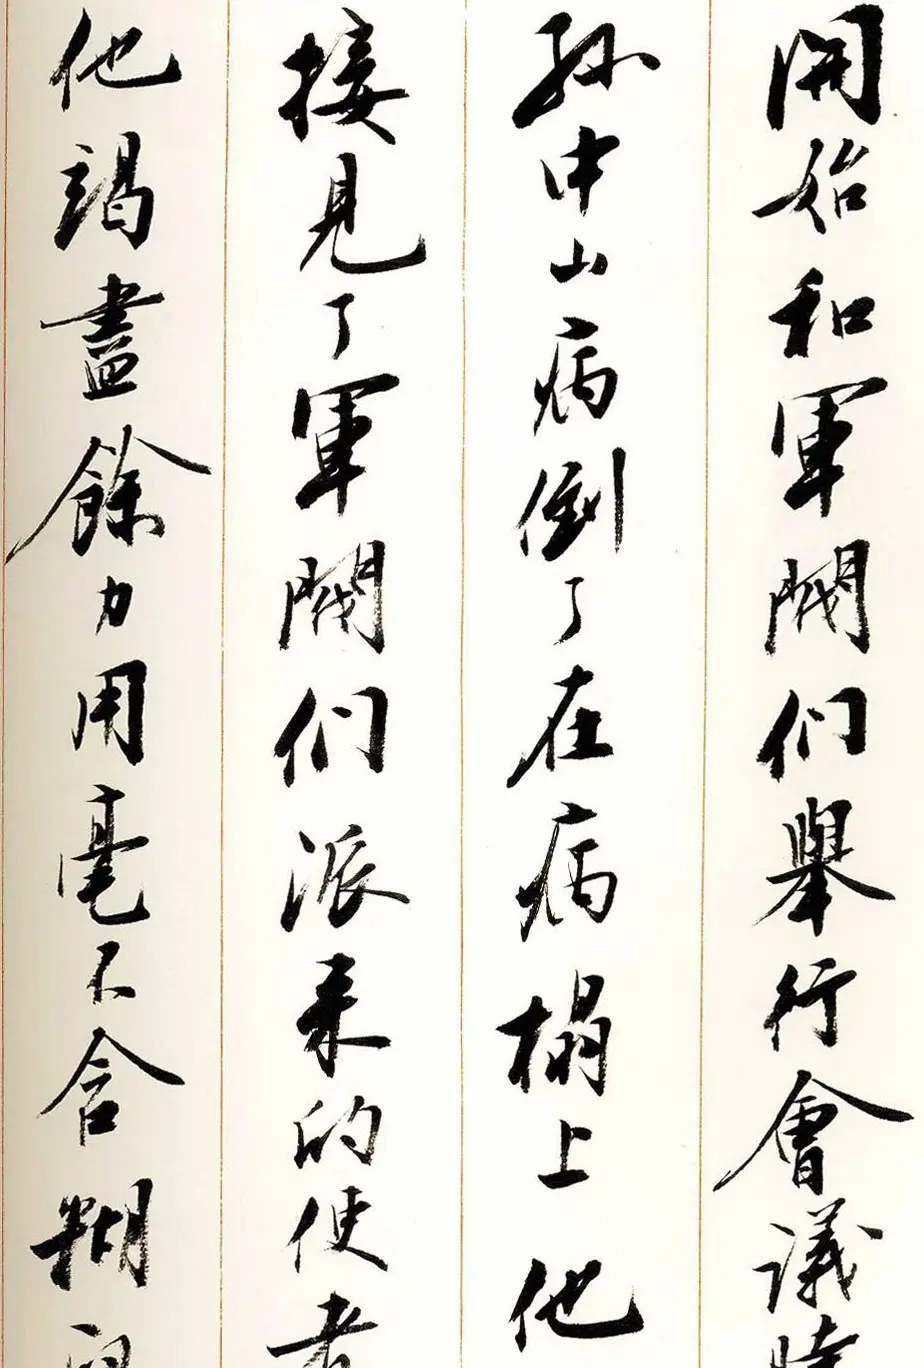 開始和軍閥們舉行會議時
孫中山病倒了在病榻上他
接見了軍閥們派来的使者
他竭盡餘力用毫不含糊